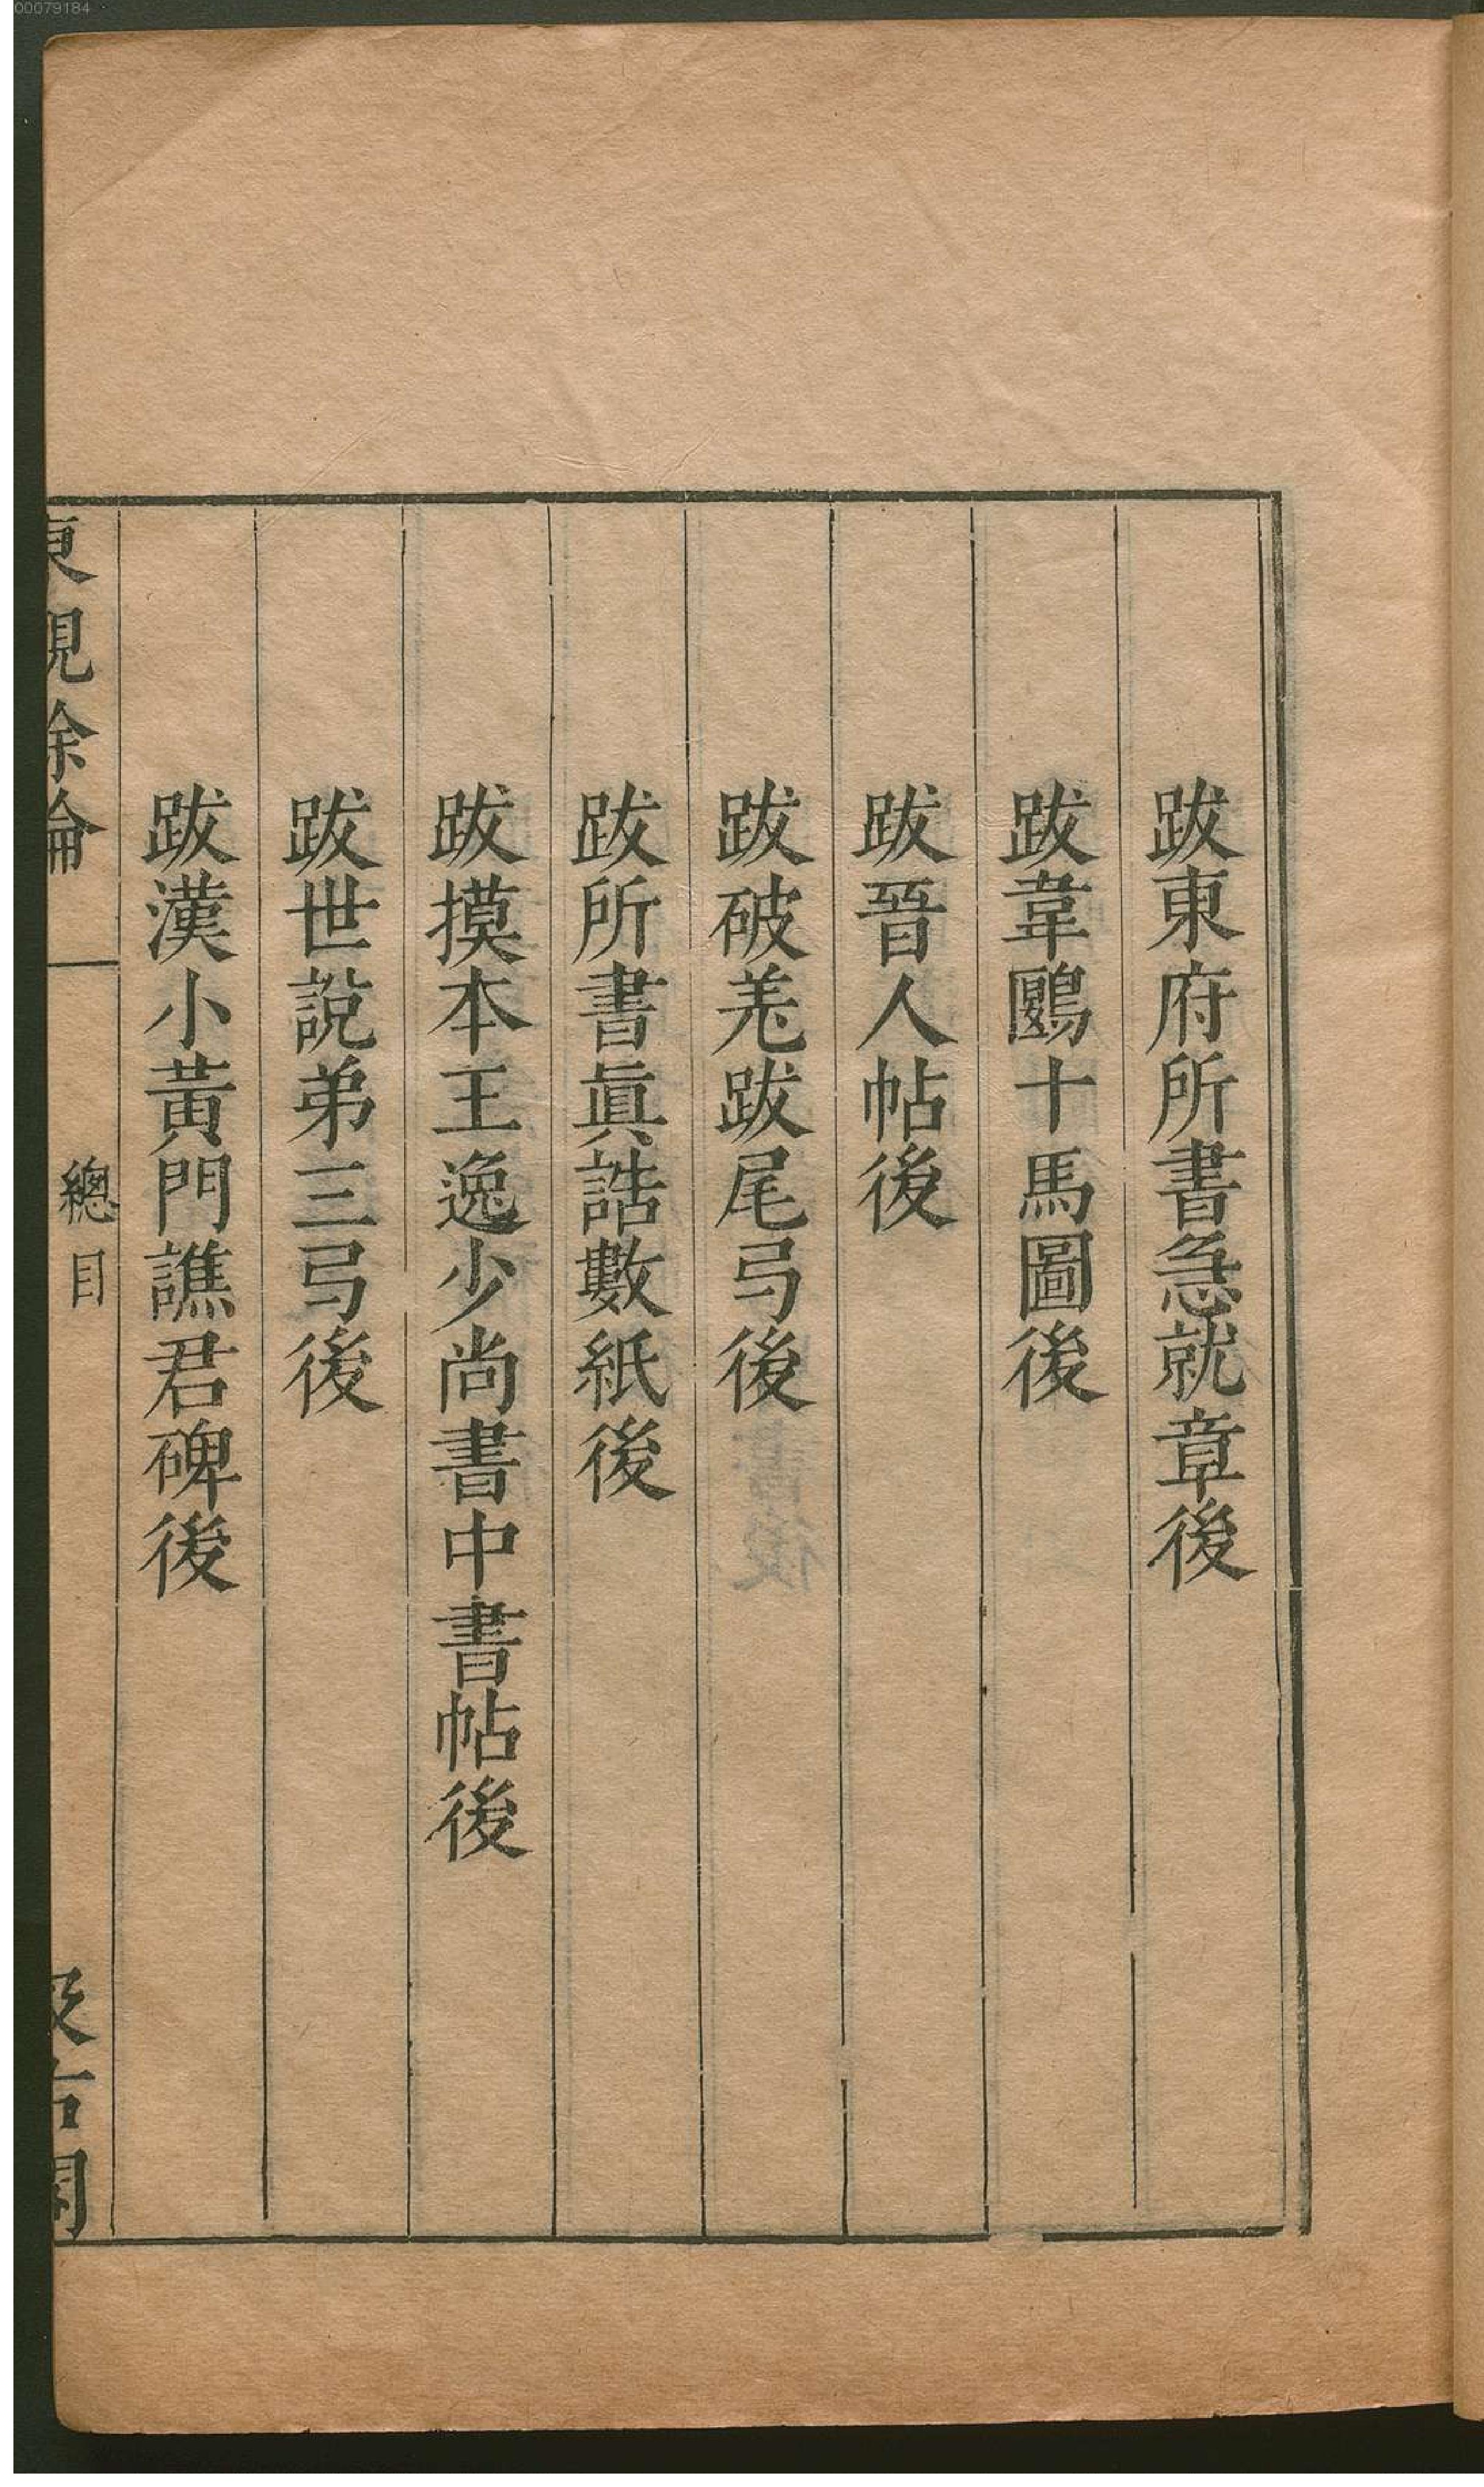 00079184
跋東府所書急就章後
跋韋鶠十馬圖後
跋晉人帖後
跋破羌跋尾弓後
跋所書眞誥數紙後
跋摸本王逸少尚書中書帖後
跋世說弟三弓後
跋漢小黃門譙君碑後
東觀餘論
總目
汲古閣